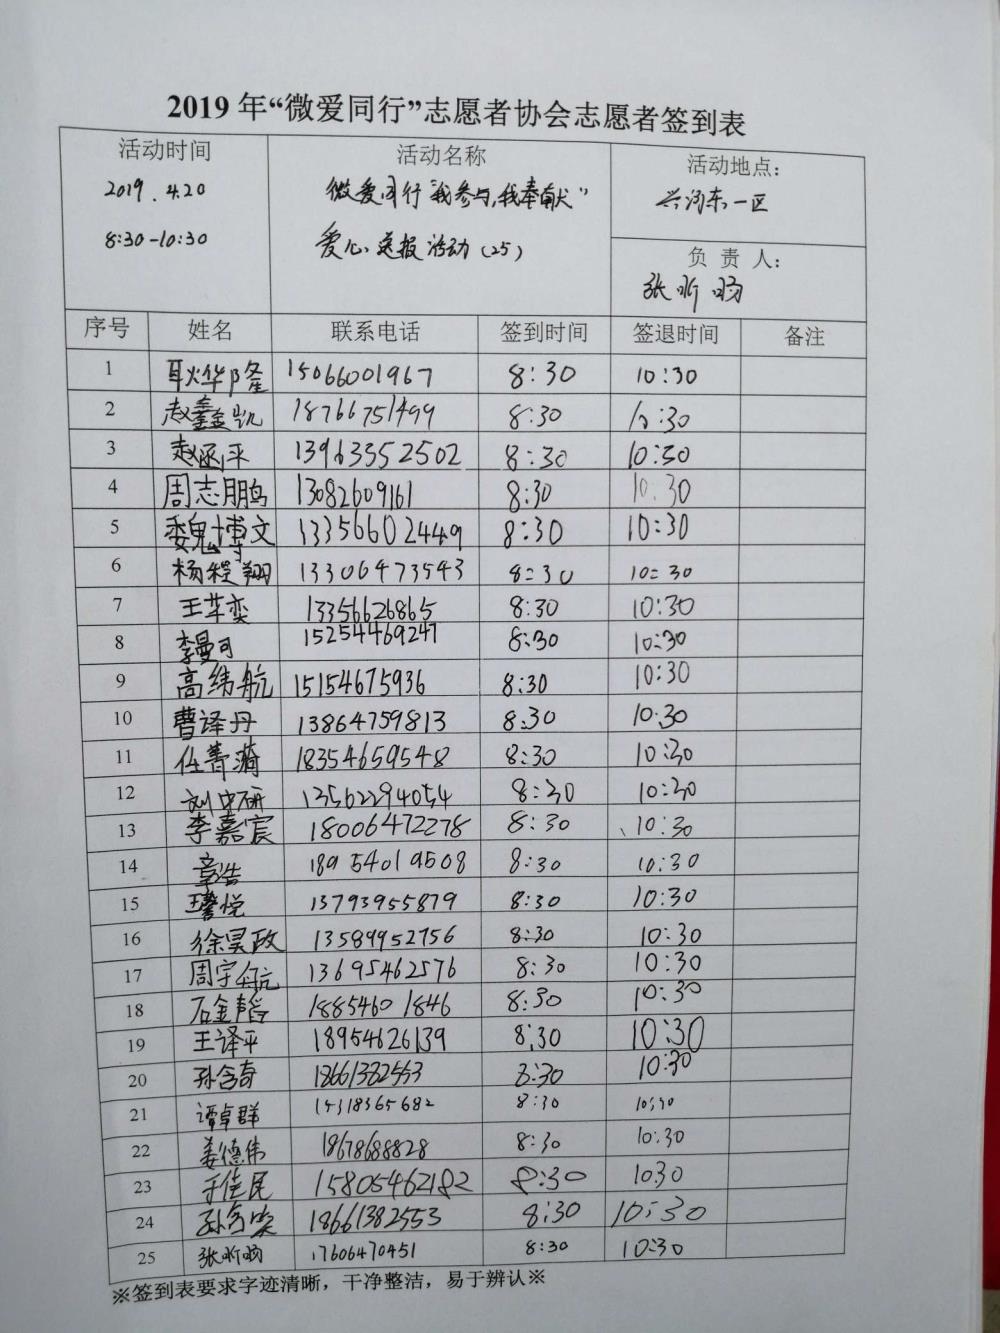 2019 年“微爱同行”志愿者协会志愿者签到表
活动时间 活动名称 活动地点：
2019.4.20 微爱同行“我参与，我奉献” 东一区
8:30-10:30 爱心送报活动（25） 负 责 人：
张昕旸
序号 姓名 联系电话 签到时间 签退时间 备注
1 耿华隆 15066001967 8:30 10:30
2 赵鑫凯 18766751499 8:30 10:30
3 赵函平 13963552502 8:30 10:30
4 周志鹏 13082609161 8:30 10:30
5 魏博文 13356602449 8:30 10:30
6 杨程翔 13306473543 8:30 10:30
7 王苹奕 13356626865 8:30 10:30
8 李曼可 15254469247 8:30 10:30
9 高纬航 15154675936 8:30 10:30
10 曹译丹 13864759813 8:30 10:30
11 任菁漪 18354659548 8:30 10:30
12 刘中研 13562294054 8:30 10:30
13 李嘉宸 18006472278 8:30 10:30
14 章浩 18954019508 8:30 10:30
15 王馨悦 13793955879 8:30 10:30
16 徐昊政 13589952756 8:30 10:30
17 周宇航 13695462576 8:30 10:30
18 石金韬 18854601846 8:30 10:30
19 王译平 18954626139 8:30 10:30
20 孙含奇 18661382553 8:30 10:30
21 谭卓群 15318365682 8:30 10:30
22 姜德伟 18678688828 8:30 10:30
23 于佳民 15805462182 8:30 10:30
24 孙含笑 18661382553 8:30 10:30
25 张昕旸 17606470451 8:30 10:30
※签到表要求字迹清晰，干净整洁，易于辨认※